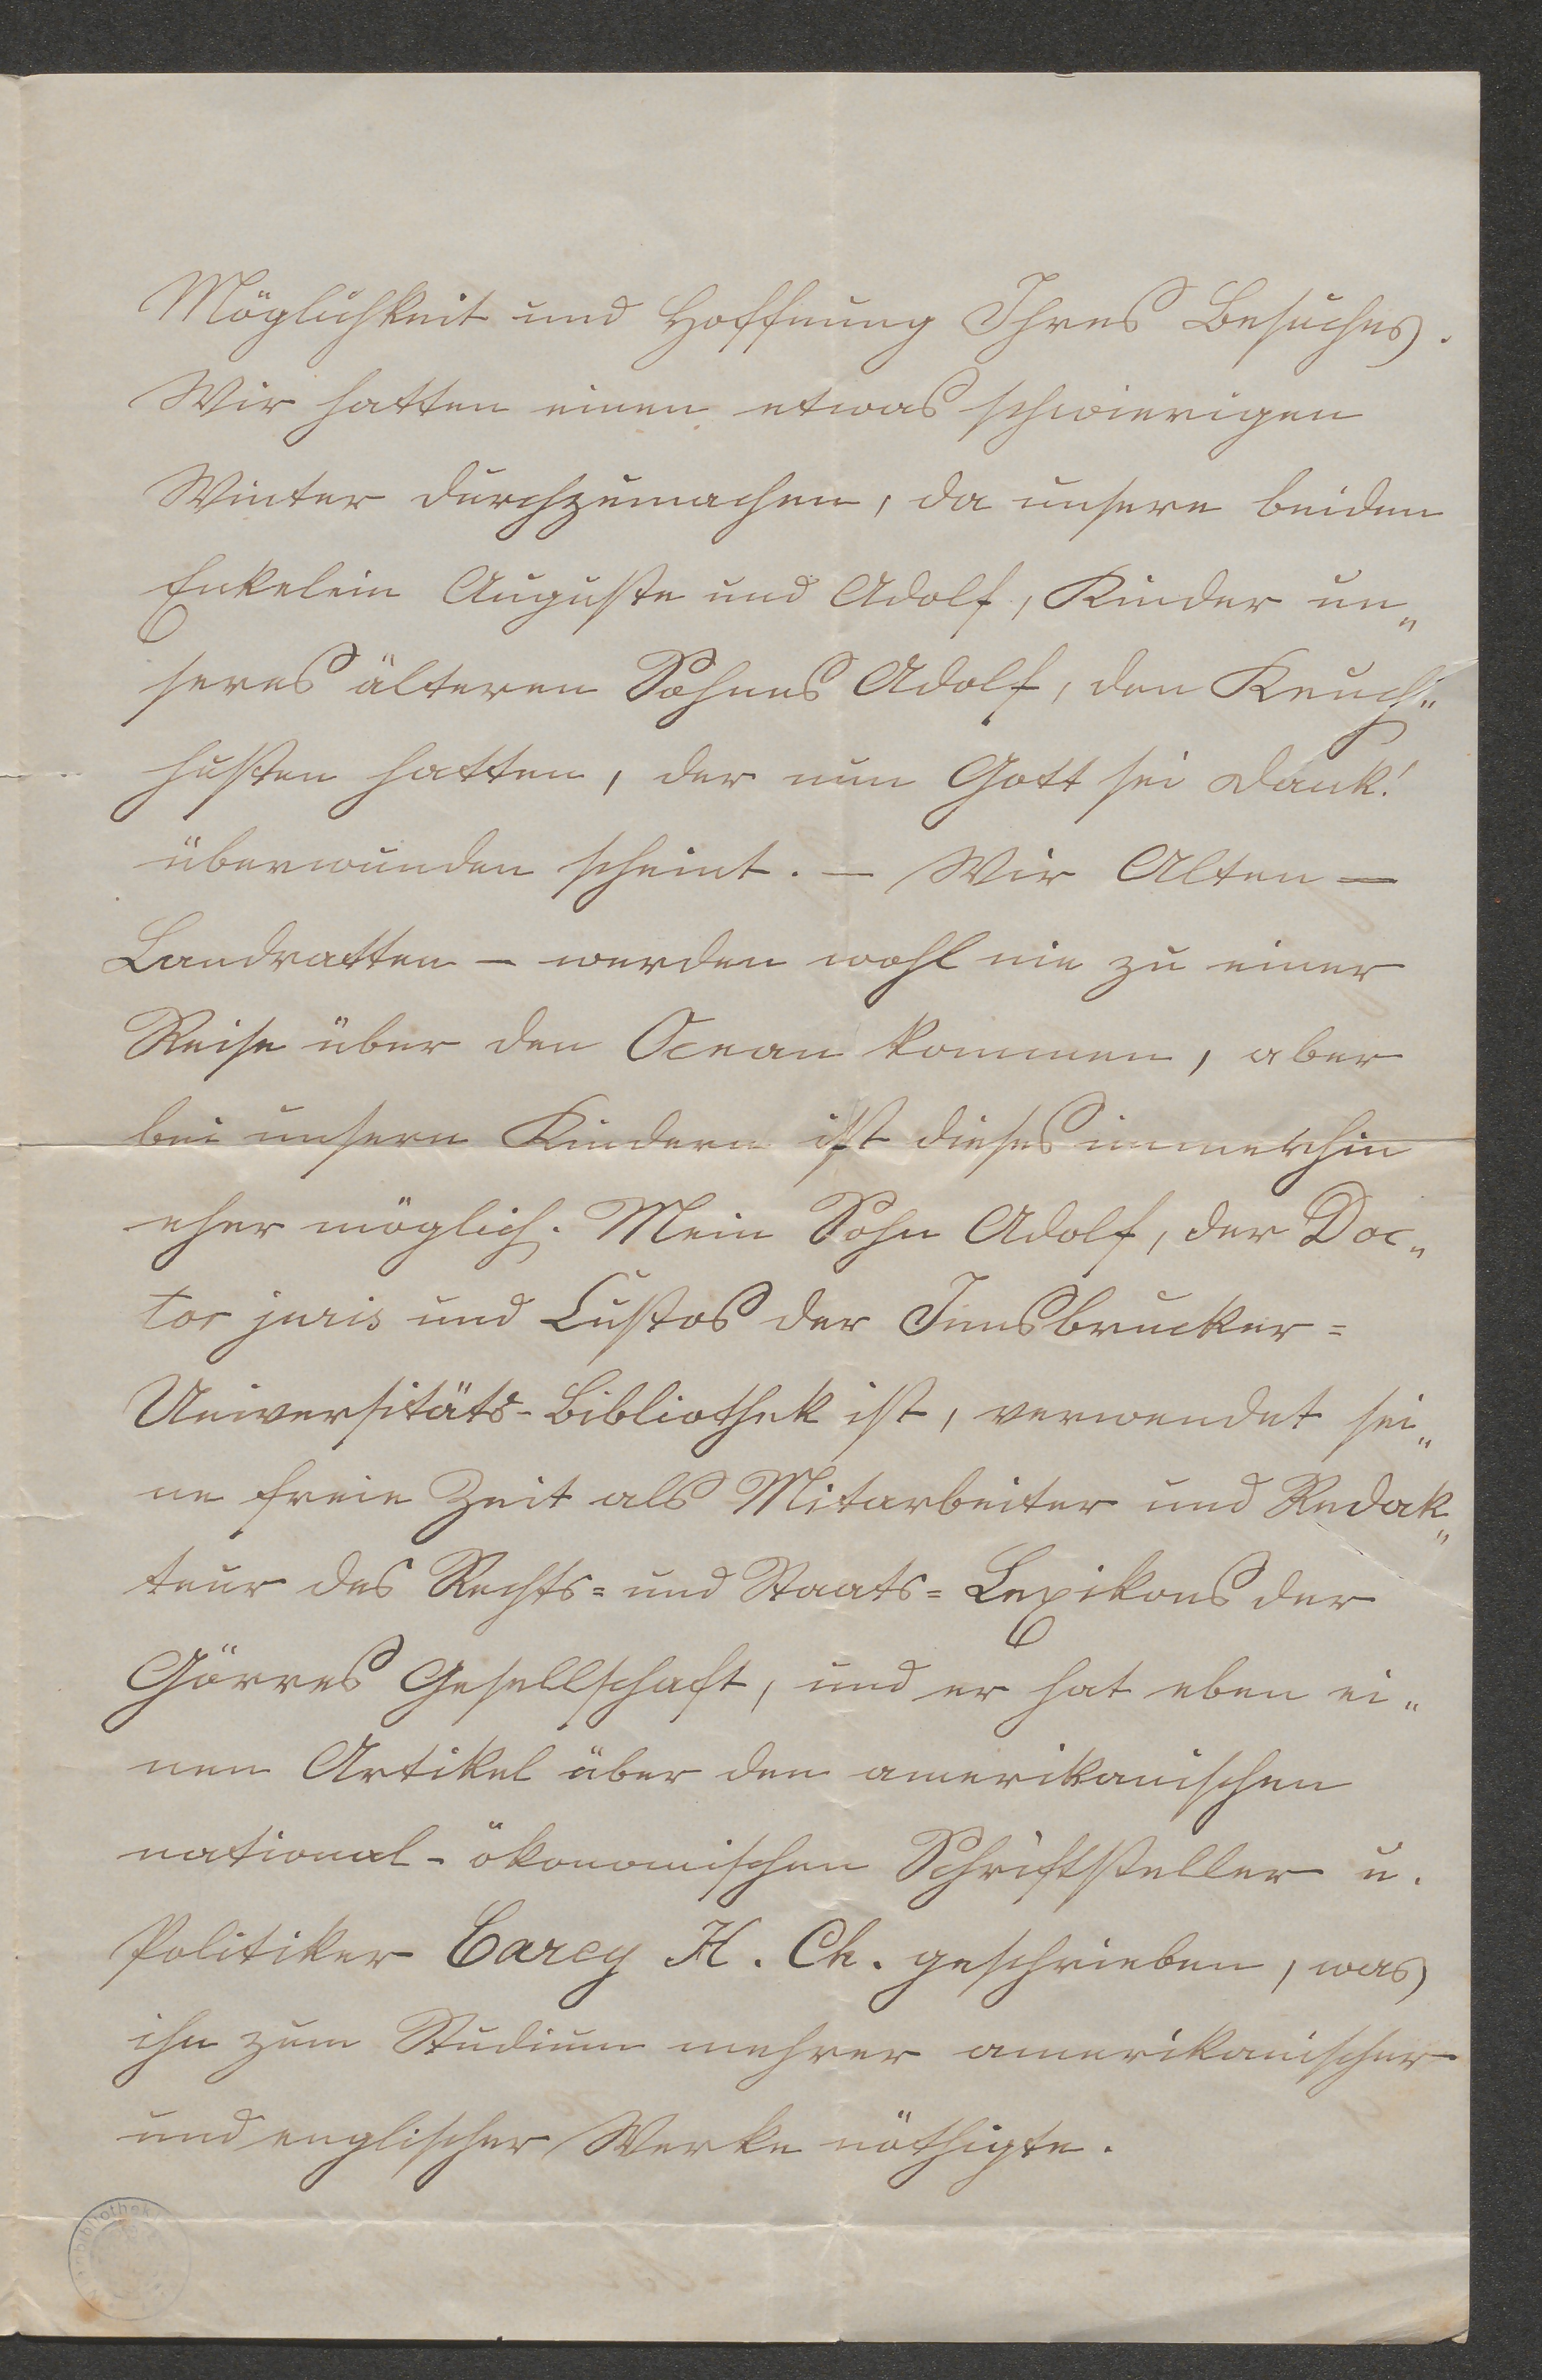 Möglichkeit und Hoffnung Ihres Besuches.
Wir hatten einen etwas schwierigen
Winter durchzumachen, da unsere beiden
Enkelein Auguste und Adolf, Kinder un„
seres älteren Sohnes Adolf, den Keuch„
husten hatten, der nun Gott sei Dank!
überwunden scheint. — Wir Alten —
Landratten — werden wohl nie zu einer
Reise über den Ocean kommen, aber
bei unsern Kindern ist dieses immerhin
eher möglich. Mein Sohn Adolf, der Doc„
tor juris und Custos der Innsbrucker=
Universitäts-Bibliothek ist, verwendet sei„
ne freie Zeit als Mitarbeiter und Redak„
teur des Rechts= und Staats=Lexikons der
Görres Gesellschaft, und er hat eben ei„
nen Artikel über den amerikanischen
national-ökonomischen Schriftsteller u.
Politiker Carey H. Ch. geschrieben, was
ihn zum Studium mehrer amerikanischer
und englischer Werke nöthigte.